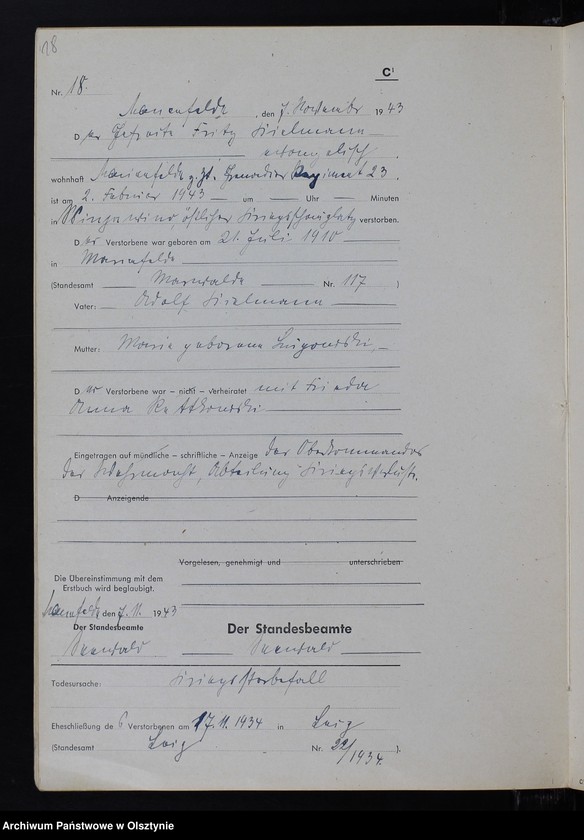 18
C¹
Nr. 18.
Marienfelde, den 7. November 1943
Der Gefreite Fritz
evangelisch
wohnhaft Marienfelde z. Zt. Grenadier Regiment 23.
ist am 2. Februar 1943 — um — Uhr — Minuten
in östlicher Kriegsschauplatz verstorben.
Der Verstorbene war geboren am 21. Juli 1910
in Marienfelde
(Standesamt Nr. 117 )
Vater: Adolf
Mutter: Maria geborene
Der Verstorbene war – nicht – verheiratet mit Frieda
Anna
Eingetragen auf mündliche – schriftliche – Anzeige des Oberkommandos
der Wehrmacht, Abteilung Kriegsverluste.
D Anzeigende
Vorgelesen, genehmigt und unterschrieben
Die Übereinstimmung mit dem
Erstbuch wird beglaubigt.
Marienfelde den 7. 11. 1943
Der Standesbeamte
Der Standesbeamte
Todesursache: Kriegssterbefall
Eheschließung des Verstorbenen am 17. 11. 1934 in
(Standesamt Nr. 22/1934.)
Archiwum Państwowe w Olsztynie